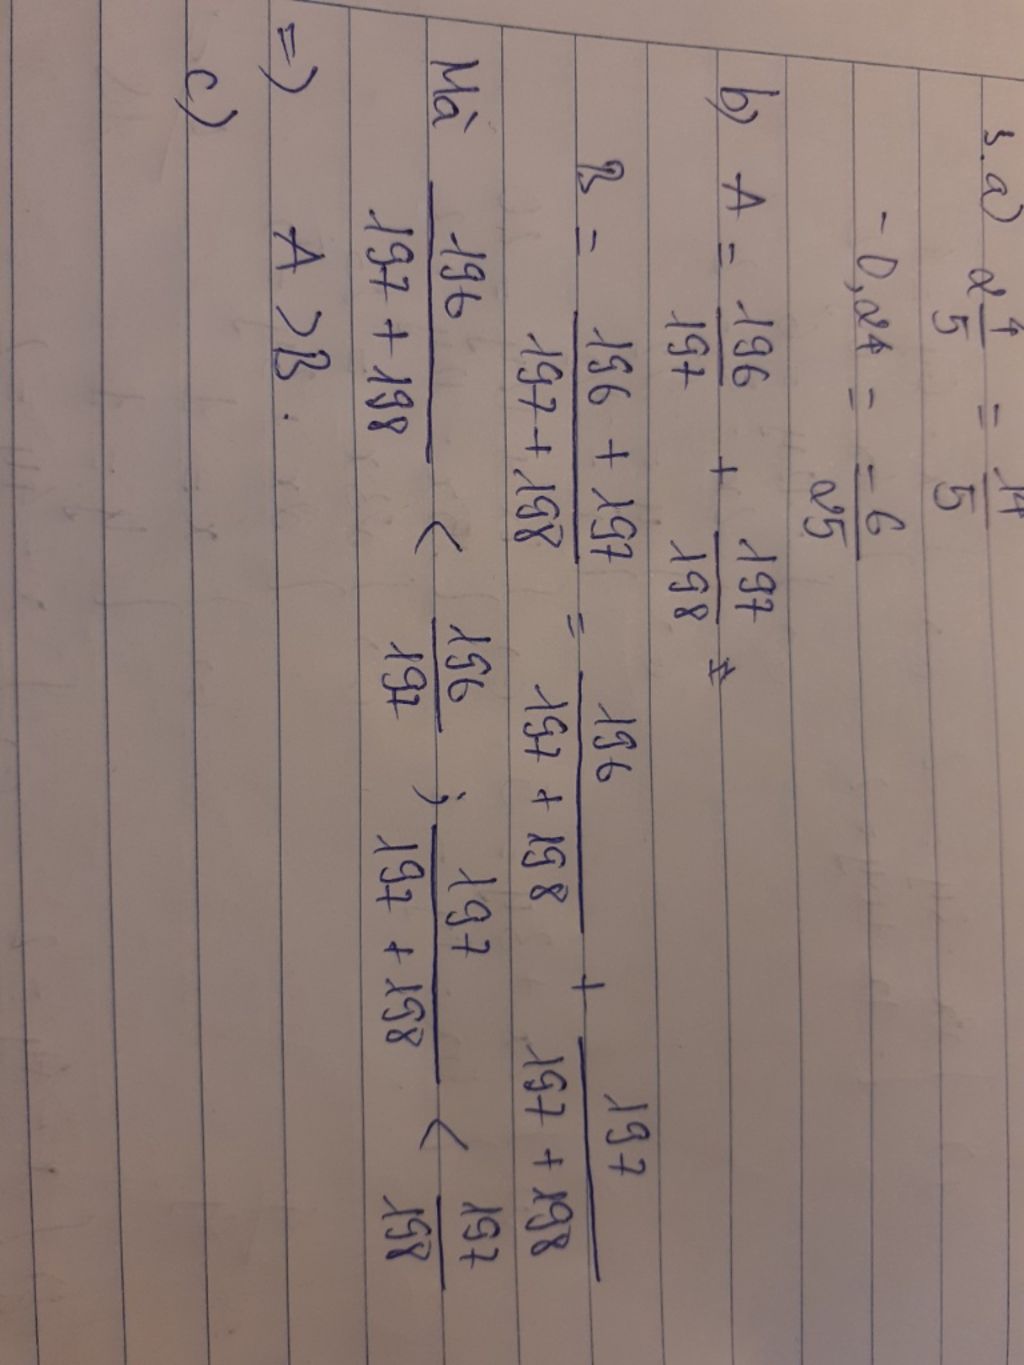 3. a) 2 4/5 = 14/5
- 0,24 = -6/25
b) A = 196/197 + 197/198
B = (196 + 197)/(197 + 198) = 196/(197 + 198) + 197/(197 + 198)
Mà 196/(197 + 198) < 196/197 ; 197/(197 + 198) < 197/198
=> A > B.
c)